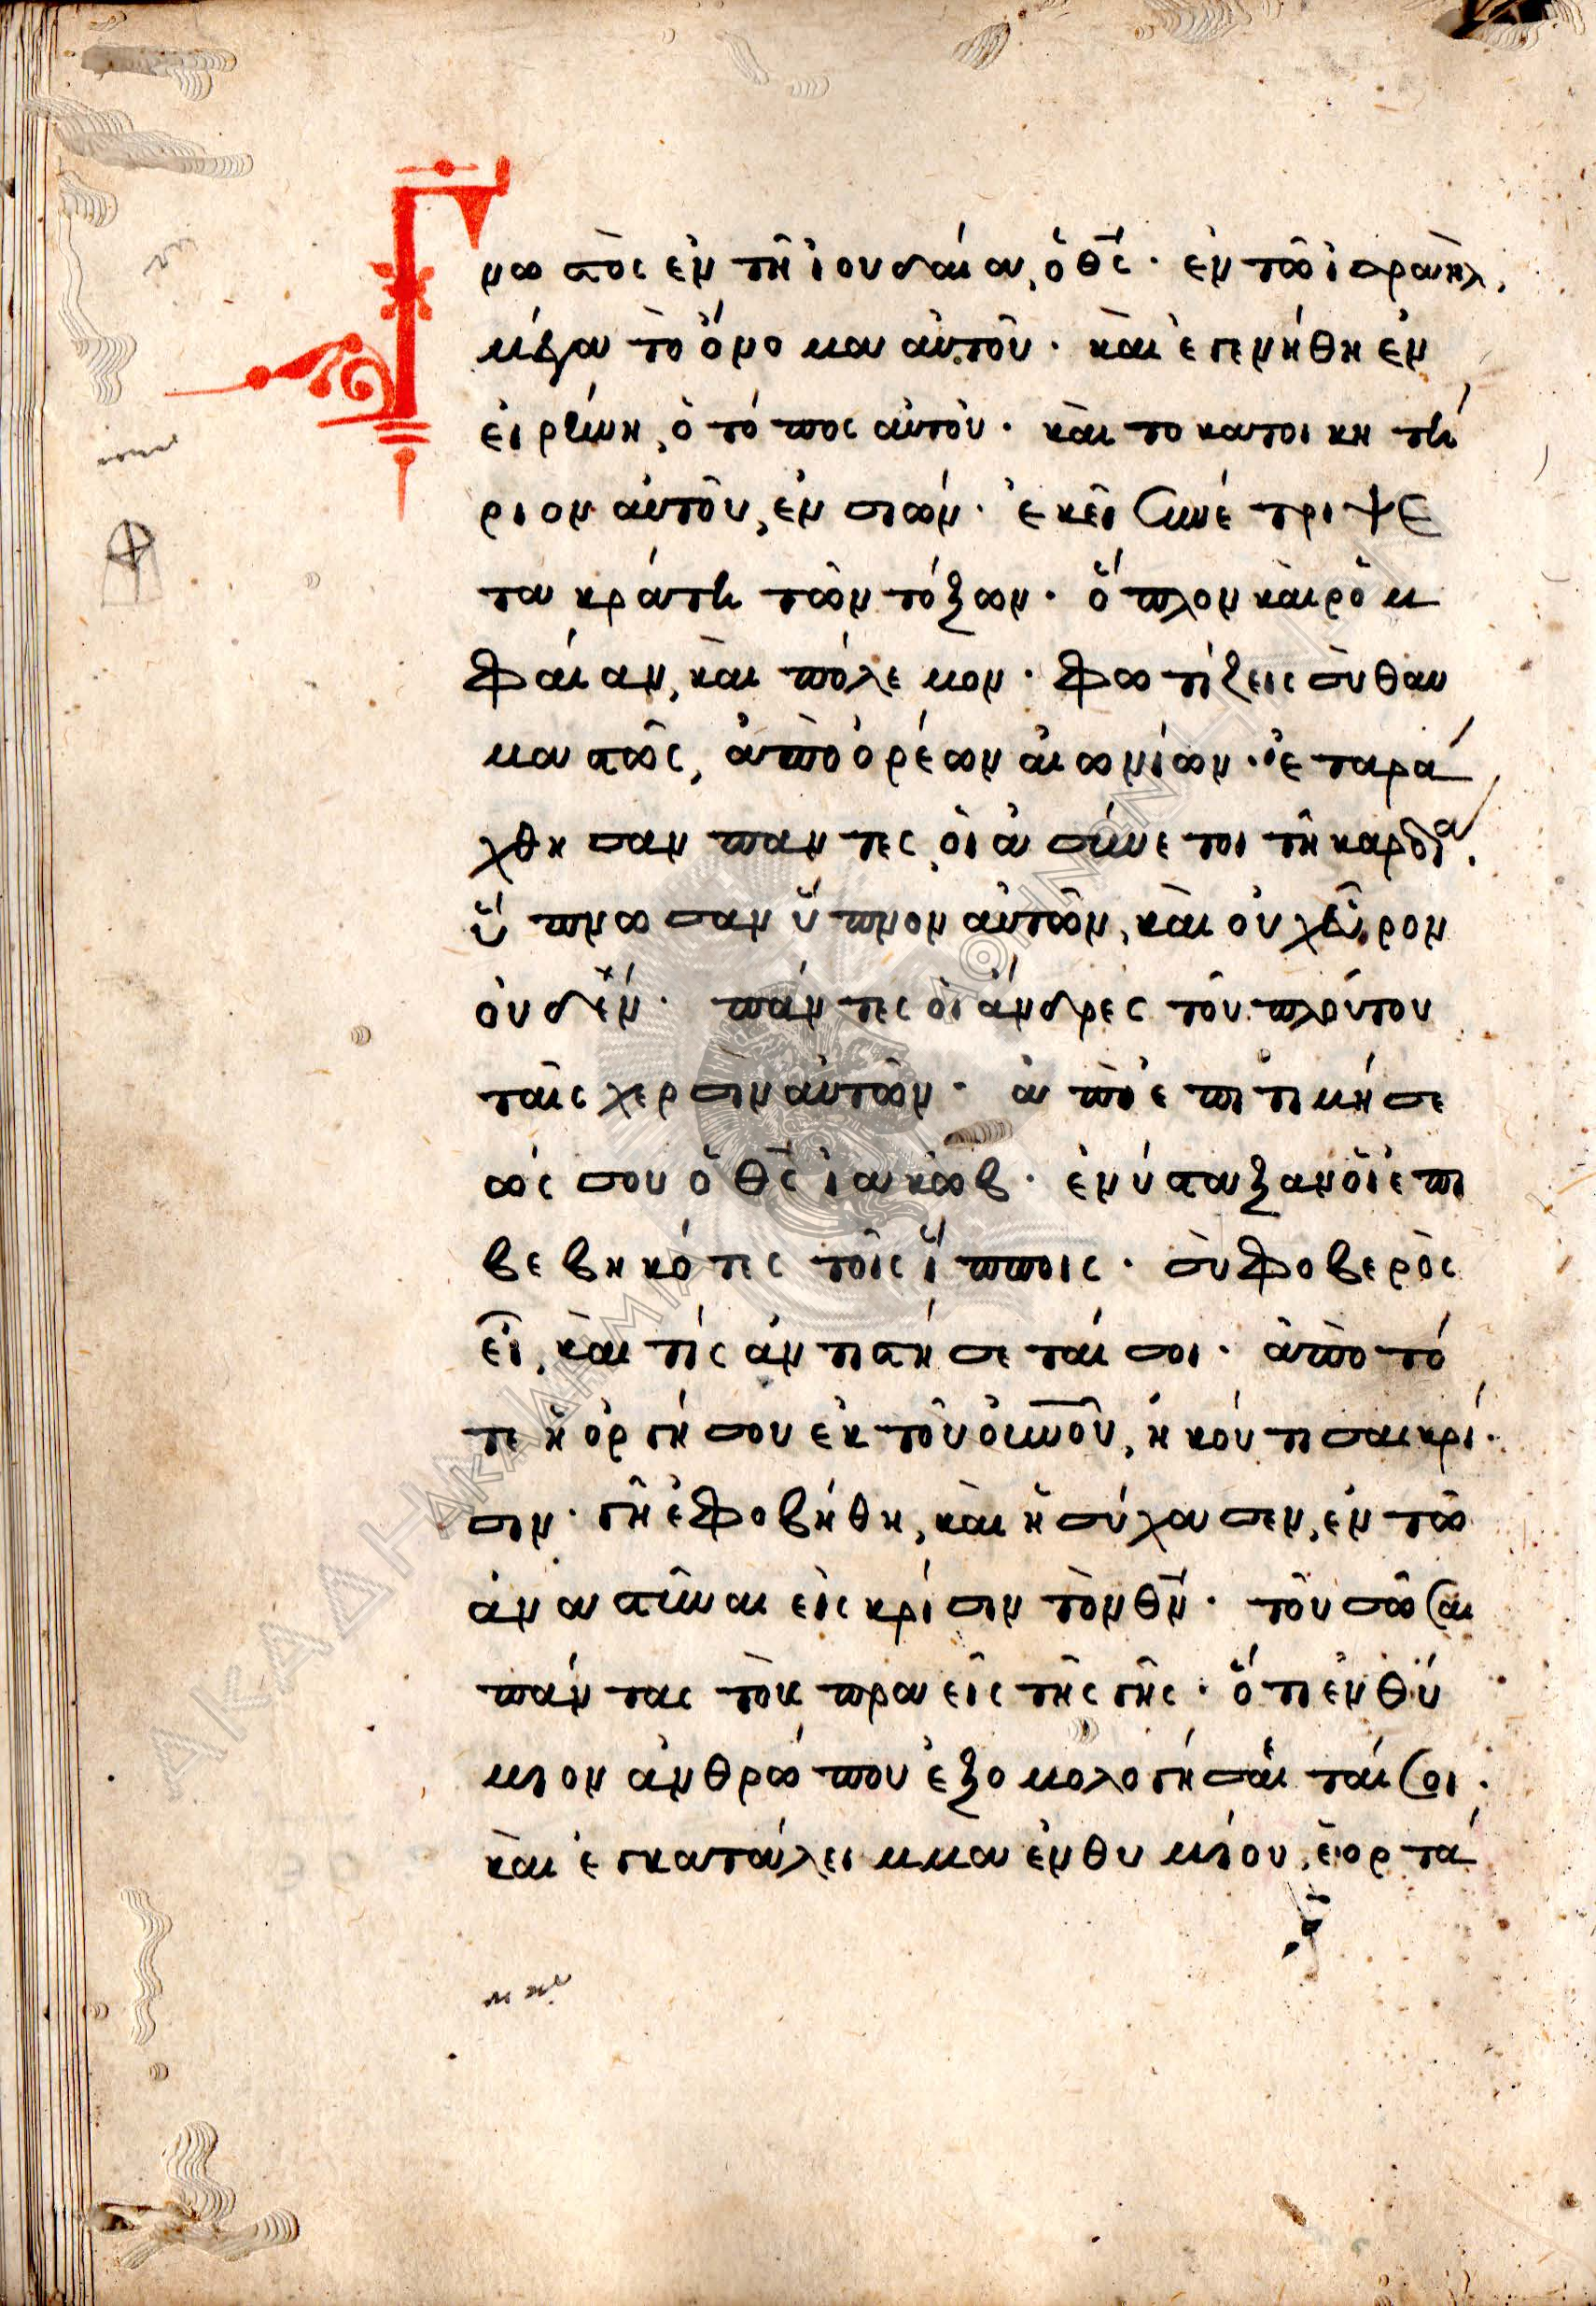 Γνωστὸς ἐν τῆ ἰουδαία, ὁ θς̅· ἐν τῶ ἰσραὴλ,
μέγα τὸ ὄνομα αὐτοῦ· καὶ ἐγενήθη ἐν
εἰρήνη, ὁ τόπος αὐτοῦ· καὶ το κατοικητή
ριον αὐτοῦ, ἐν σιών· ἐκεῖ συνέτριψε
τα κράτη τῶν τόξων· ὅπλον καὶ ρομ
φαίαν, καὶ πόλεμον· φωτίζεις σὺ θαυ
μαστῶς, ἀπὸ ὀρέων αἰωνίων· ἐταρά
χθησαν παντες, οἱ ἀσύνετοι τῆ καρδία.
ὕπνωσαν ὕπνον αὐτῶν, καὶ οὐχ εὗρον
οὐδὲν· πάντες οἱ ἄνδρες τοῦ πλούτου
ταῖς χερσὶν αὐτῶν· ἀπὸ ἐπιτιμήσε
ώς σου ὁ θς̅ ἰακὼβ· ἐνύσταξαν οἱ ἐπι
βεβηκότες τοῖς ἵπποις· σὺ φοβερὸς
εἶ, καὶ τίς ἀντιστήσεταί σοι· ἀπὸ τό
τε ἡ ὀργή σου ἐκ τοῦ οὐνοῦ, ἠκούτισας κρί·
σιν· γῆ ἐφοβήθη, καὶ ἡσύχασεν, ἐν τῶ
ἀναστῆναι εἰς κρίσιν τὸν θν̅· τοῦ σῶσαι
πάντας τοὺς πραεῖς τῆς γῆς· ὅτι ἐνθύ
μιον ἀνθρώπου ἐξομολογήσεταί σοι·
καὶ ἐγκατάλειμμα ἐνθυμίου, ἑορτά
ΑΚΑΔΗΜΙΑ ΑΘΗΝΩΝ